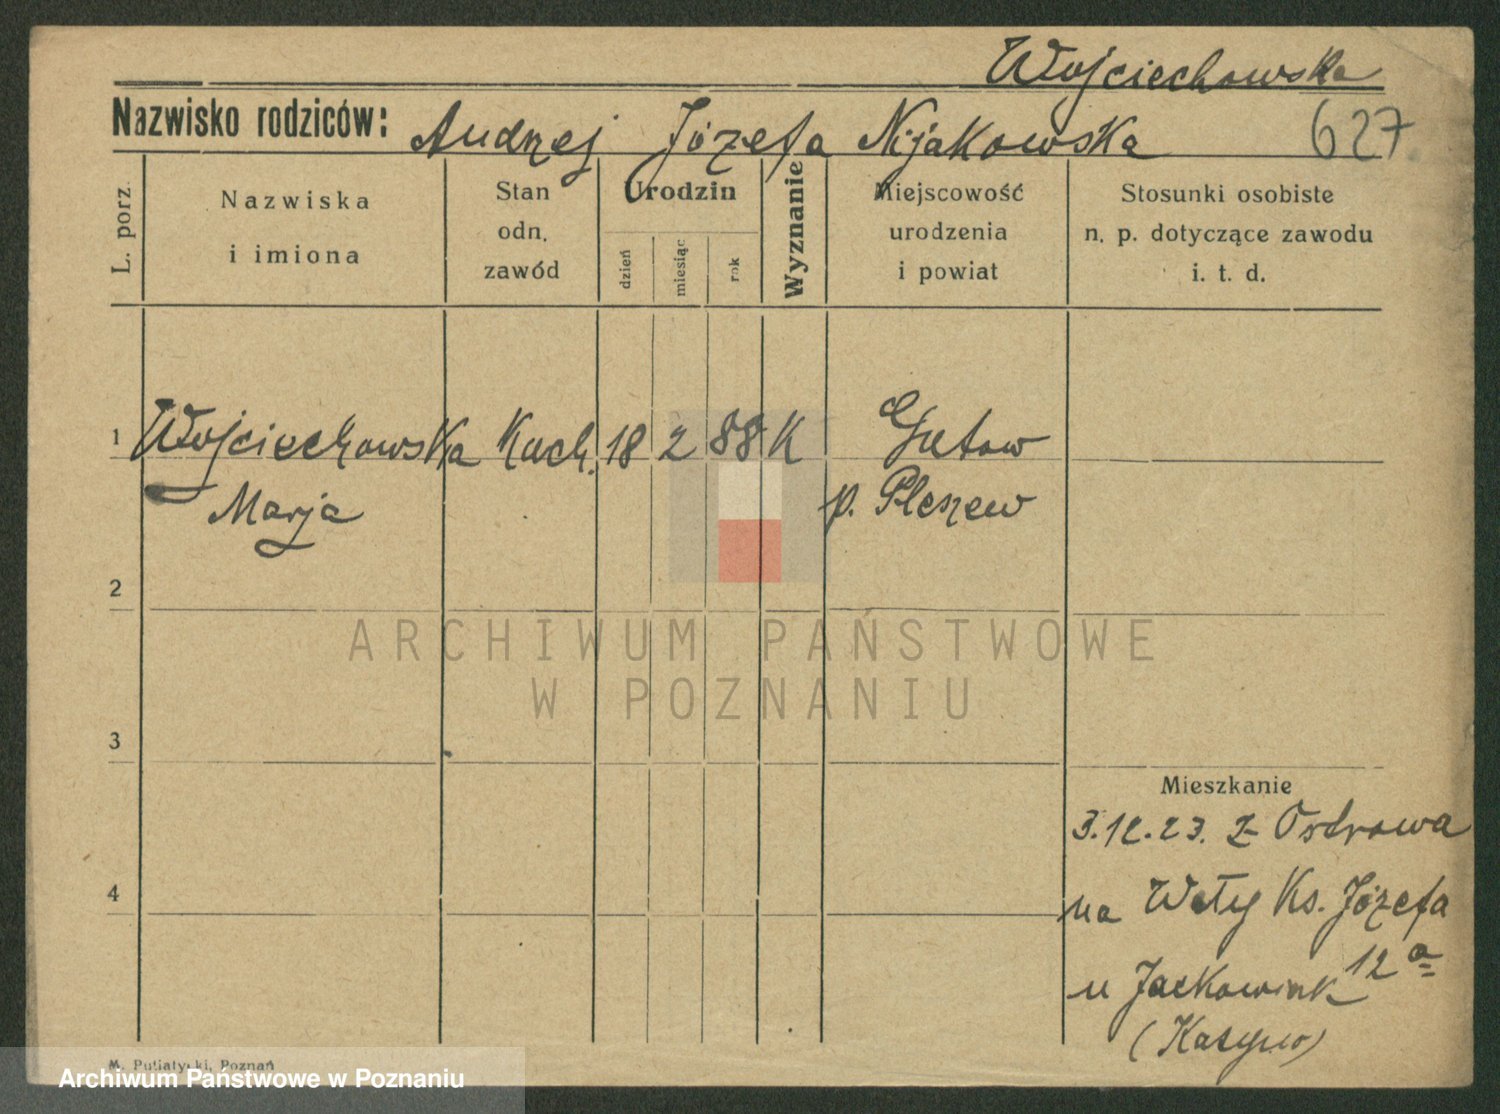 Wojciechowska
Nazwisko rodziców: Andrzej Józefa Nijakowska 627
L. porz.
Nazwiska
i imiona
Stan
odn.
zawód
Urodzin
dzień
miesiąc
rok
Wyznanie
Miejscowość
urodzenia
i powiat
Stosunki osobiste
n. p. dotyczące zawodu
i. t. d.
1 Wojciechowska Kuch. 18 2 88 K Gutow
Marja p. Pleszew
2
ARCHIWUM PAŃSTWOWE
W POZNANIU
3
Mieszkanie
3.12.23. z Ostrowa
4
na Wały Ks. Józefa
12a
u Jackowiak
(Kasyno)
M. Putiatycki, Poznań
Archiwum Państwowe w Poznaniu